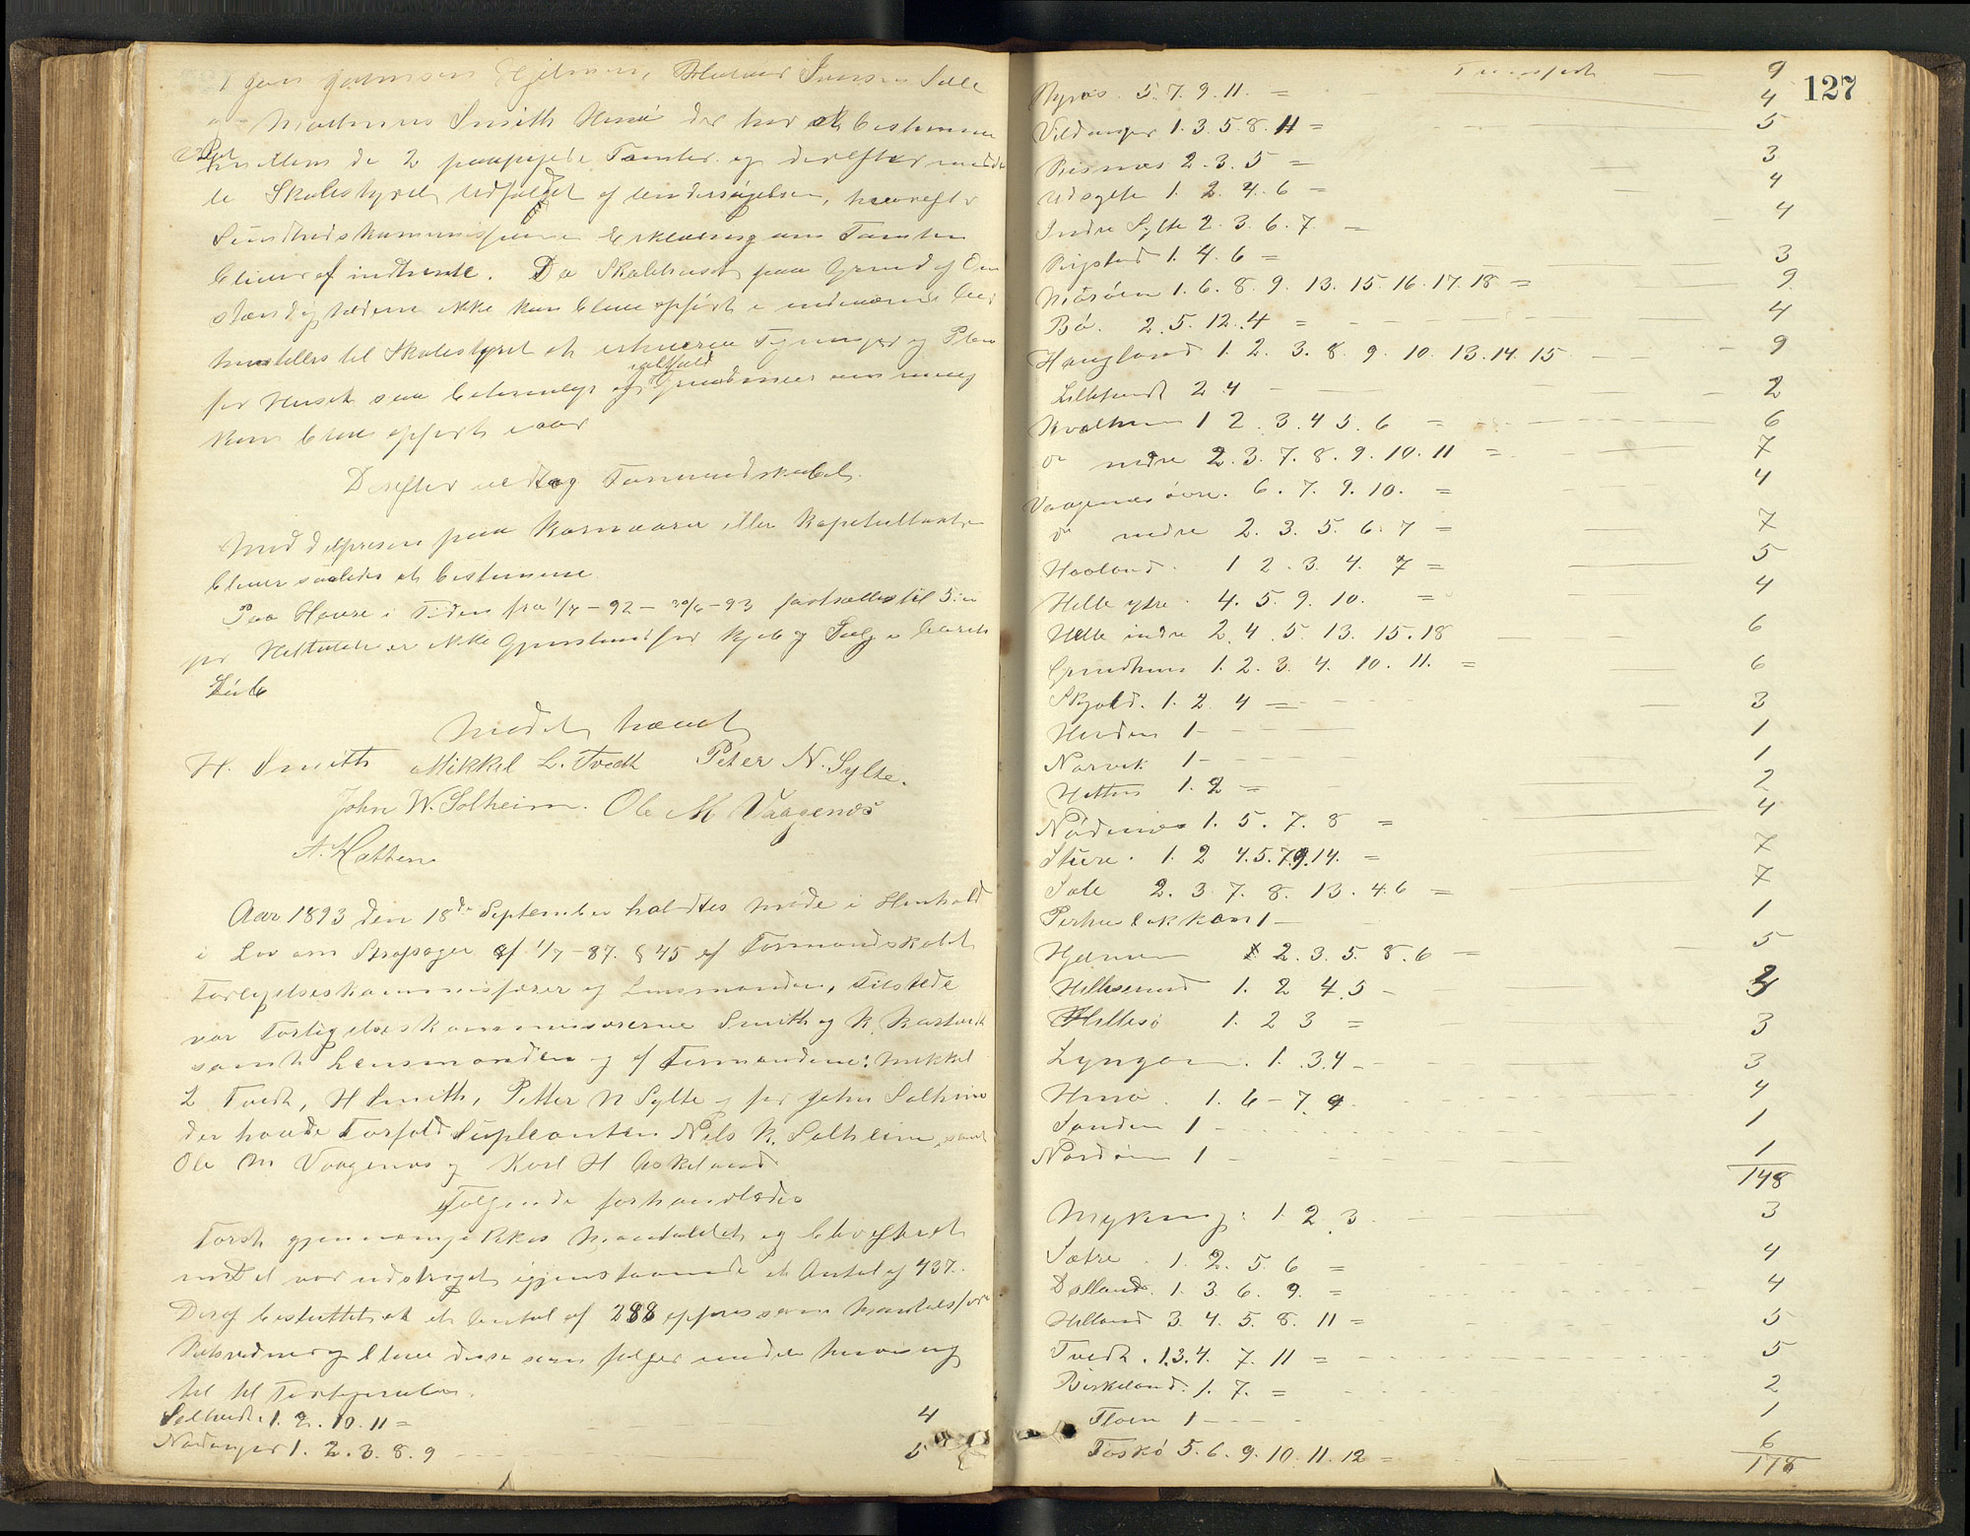 og Mathias Smith Hernø der har at bestemme
imellem de 2 paapegede Tomter og derefter medde
le Skolestyret Udfaldet af Undersøgelsen, hvorefter
Sundhedskommissionens Erklæring om Tomten
bliver af indhente. Da Skolehuset paa Grund af Om
stændighederne ikke kan blive opført i indeværende
henstilles til Skolestyret at erhverve Tegninger og Plan
for Huset saa betimeligt og ialfald Grundmur om mulig
kan blive opført i aar
Derefter vedtog Formandskabet.
Middelprisen paa Kornvarer eller Kapiteltakst
bliver saaledes at bestemme
Paa Havre i Tiden fra 1/7-92-30/6-93 fastsættes til 5
pr Hektoliter er ikke Gjenstand for Kjøb og Salg i
Mødet hævet
H. Smith Mikkel L. Tvedt Peter N. Sylte.
John W. Solheim. Ole M Vaagenæs
A. Hatten
Aar 1893 den 18de September holdtes Møde i Henhold
i Lov om Strafsager af 1/7-87. § 45 af Formandskabet
Forligelseskommissærer og Lensmanden, Tilstede
var Forligelseskommissærerne Smith og K. Kartveit
samt Lensmanden og af Formændene: Mikkel
L Tvedt, H Smith, Petter N Sylte og for John Solheim
der havde Forfald Supleanten Nils K. Solheim, samt
Ole M Vaagenæs og Karl H Askeland
Følgende forhandledes
Først gjennemgikkes Mandtallet og blev efterat
med et var udstrøget igjenstaaende et Antal af 437.
Deraf besluttet at et Antal af 288 opføres som
og blive disse som følger
Solheid. 1. 2. 10. 11 = 4
Nodanger 1. 2. 3. 8. 9 5
127
Transport 9
Nyræs. 5. 7. 9. 11. = 4
Vildanger 1. 3. 5. 8. 11 = 5
Risnæs 2. 3. 5 = 3
Udsylte 1. 2. 4. 6 = 4
Indre Sylte 2. 3. 6. 7. = 4
Rigstad 1. 4. 6 = 3
Marøen 1. 6. 8. 9. 13. 15. 16. 17. 18 = 9
Bø. 2. 5. 12. 4 = 4
Haugland 1. 2. 3. 8. 9. 10. 13. 14. 15 9
Lillesund 2 4 2
Kvalheim 1 2. 3. 4 5. 6 = 6
do nedre 2. 3. 7. 8. 9. 10. 11 = 7
Vaagenæs øvre. 6. 7. 9. 10. = 4
do nedre 2. 3. 5. 6. 7 = 7
Haaland. 1 2. 3. 4. 7 = 5
Helle ytre. 4. 5. 9. 10. = 4
Helle indre 2. 4. 5. 13. 15. 18 6
Grindheim 1. 2. 3. 4. 10. 11. = 6
Skjold. 1. 2. 4 = 3
Herden 1 1
Narvik 1 1
Hetten 1. 2 = 2
Nødnæs 1. 5. 7. 8 = 4
Sture. 1. 2 4. 5. 7. 9. 14. = 7
Sale 2. 3 7. 8. 13. 4. 6 = 7
Perhelakkan 1 1
Hjelmen 2. 3. 5. 8. 6 = 5
Hillesund 1. 2 4. 5 4
Hillesø 1. 2 3 = 3
Lyngøen. 1. 3. 4 3
Hernø. 1. 6 - 7. 9 4
Sanden 1 1
Nordøen 1 1
148
Myking: 1. 2. 3. 3
Sætre. 1. 2. 5. 6 = 4
Dalland. 1. 3. 6. 9. = 4
Hilland 3. 4. 5. 8. 11 = 5
Tvedt. 1. 3. 4. 7. 11 = 5
Birkeland. 1. 7. = 2
Floen 1 1
Foskø 5. 6. 9. 10. 11. 12 = 6
178